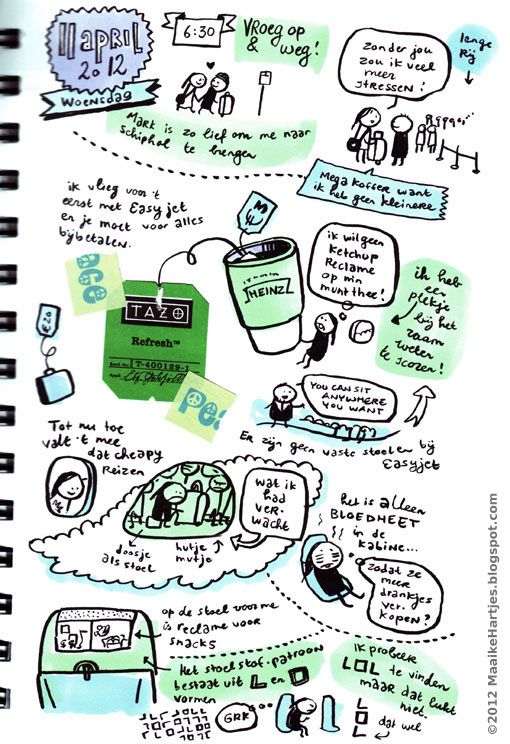 11 APRIL
2012
WOENSDAG
6:30
VROEG OP
& WEG!
MARK IS ZO LIEF OM ME NAAR
SCHIPHOL TE BRENGEN
ZONDER JOU
ZOU IK VEEL
MEER
STRESSEN!
lange
Rij
MEGA KOFFER WANT
ik HEB GEEN KLEINERE
ik vlieg voor 't
eerst met EasyJet
en je moet voor alles
bijbetalen.
HEINZ
ik wil geen
KETCHUP
RECLAME
OP MIJN
MUNTTHEE!
ik heb
een
plekje
bij het
raam
weten
te scoren!
TAZO
Refresh™
T-400129-1
YOU CAN SIT
ANYWHERE
YOU WANT
ER zijn geen vaste stoelen bij
EasyJet
Tot nu toe
valt 't mee
dat cheapy
Reizen
wat ik
had
ver-
wacht
doosje
als stoel
hutje
mutje
het is alleen
BLOEDHEET
in de
kabine...
zodat ze
meer
drankjes
ver-
kopen?
op de stoel voor me
is reclame voor
snacks
Het stoelstof-patroon
bestaat uit L en O
vormen
GRR
ik probeer
LOL te vinden
maar dat lukt
niet.
dat wel
©2012 MaaikeHartjes.blogspot.com